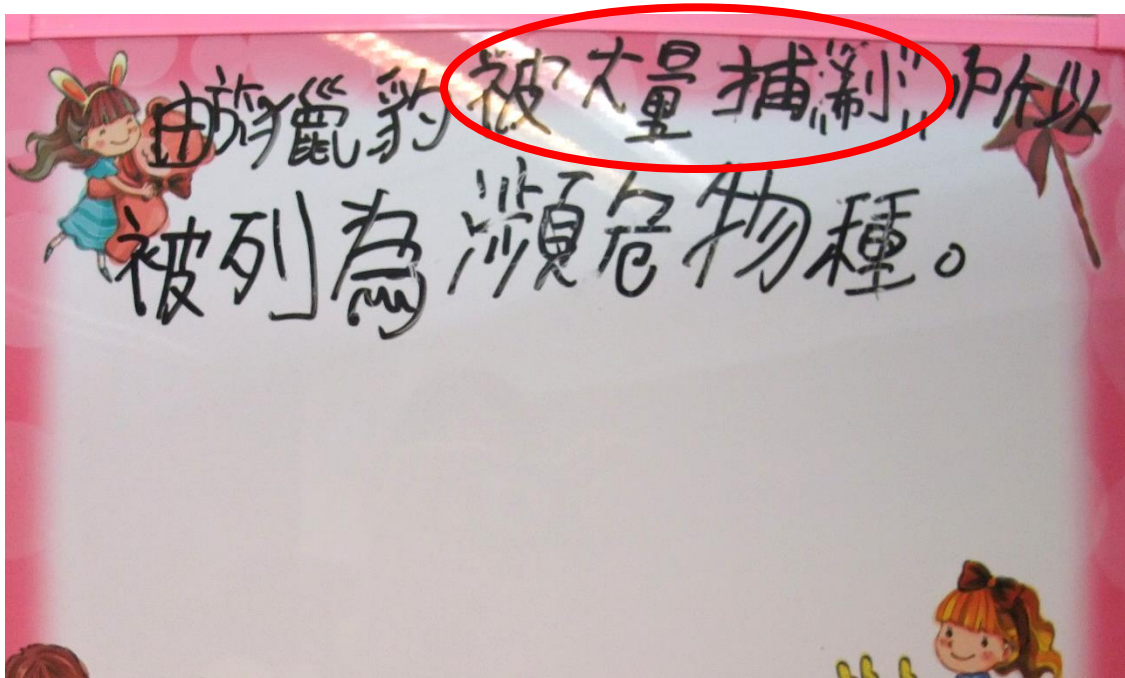 由於獵豹被大量捕所以
被列為瀕危物種。